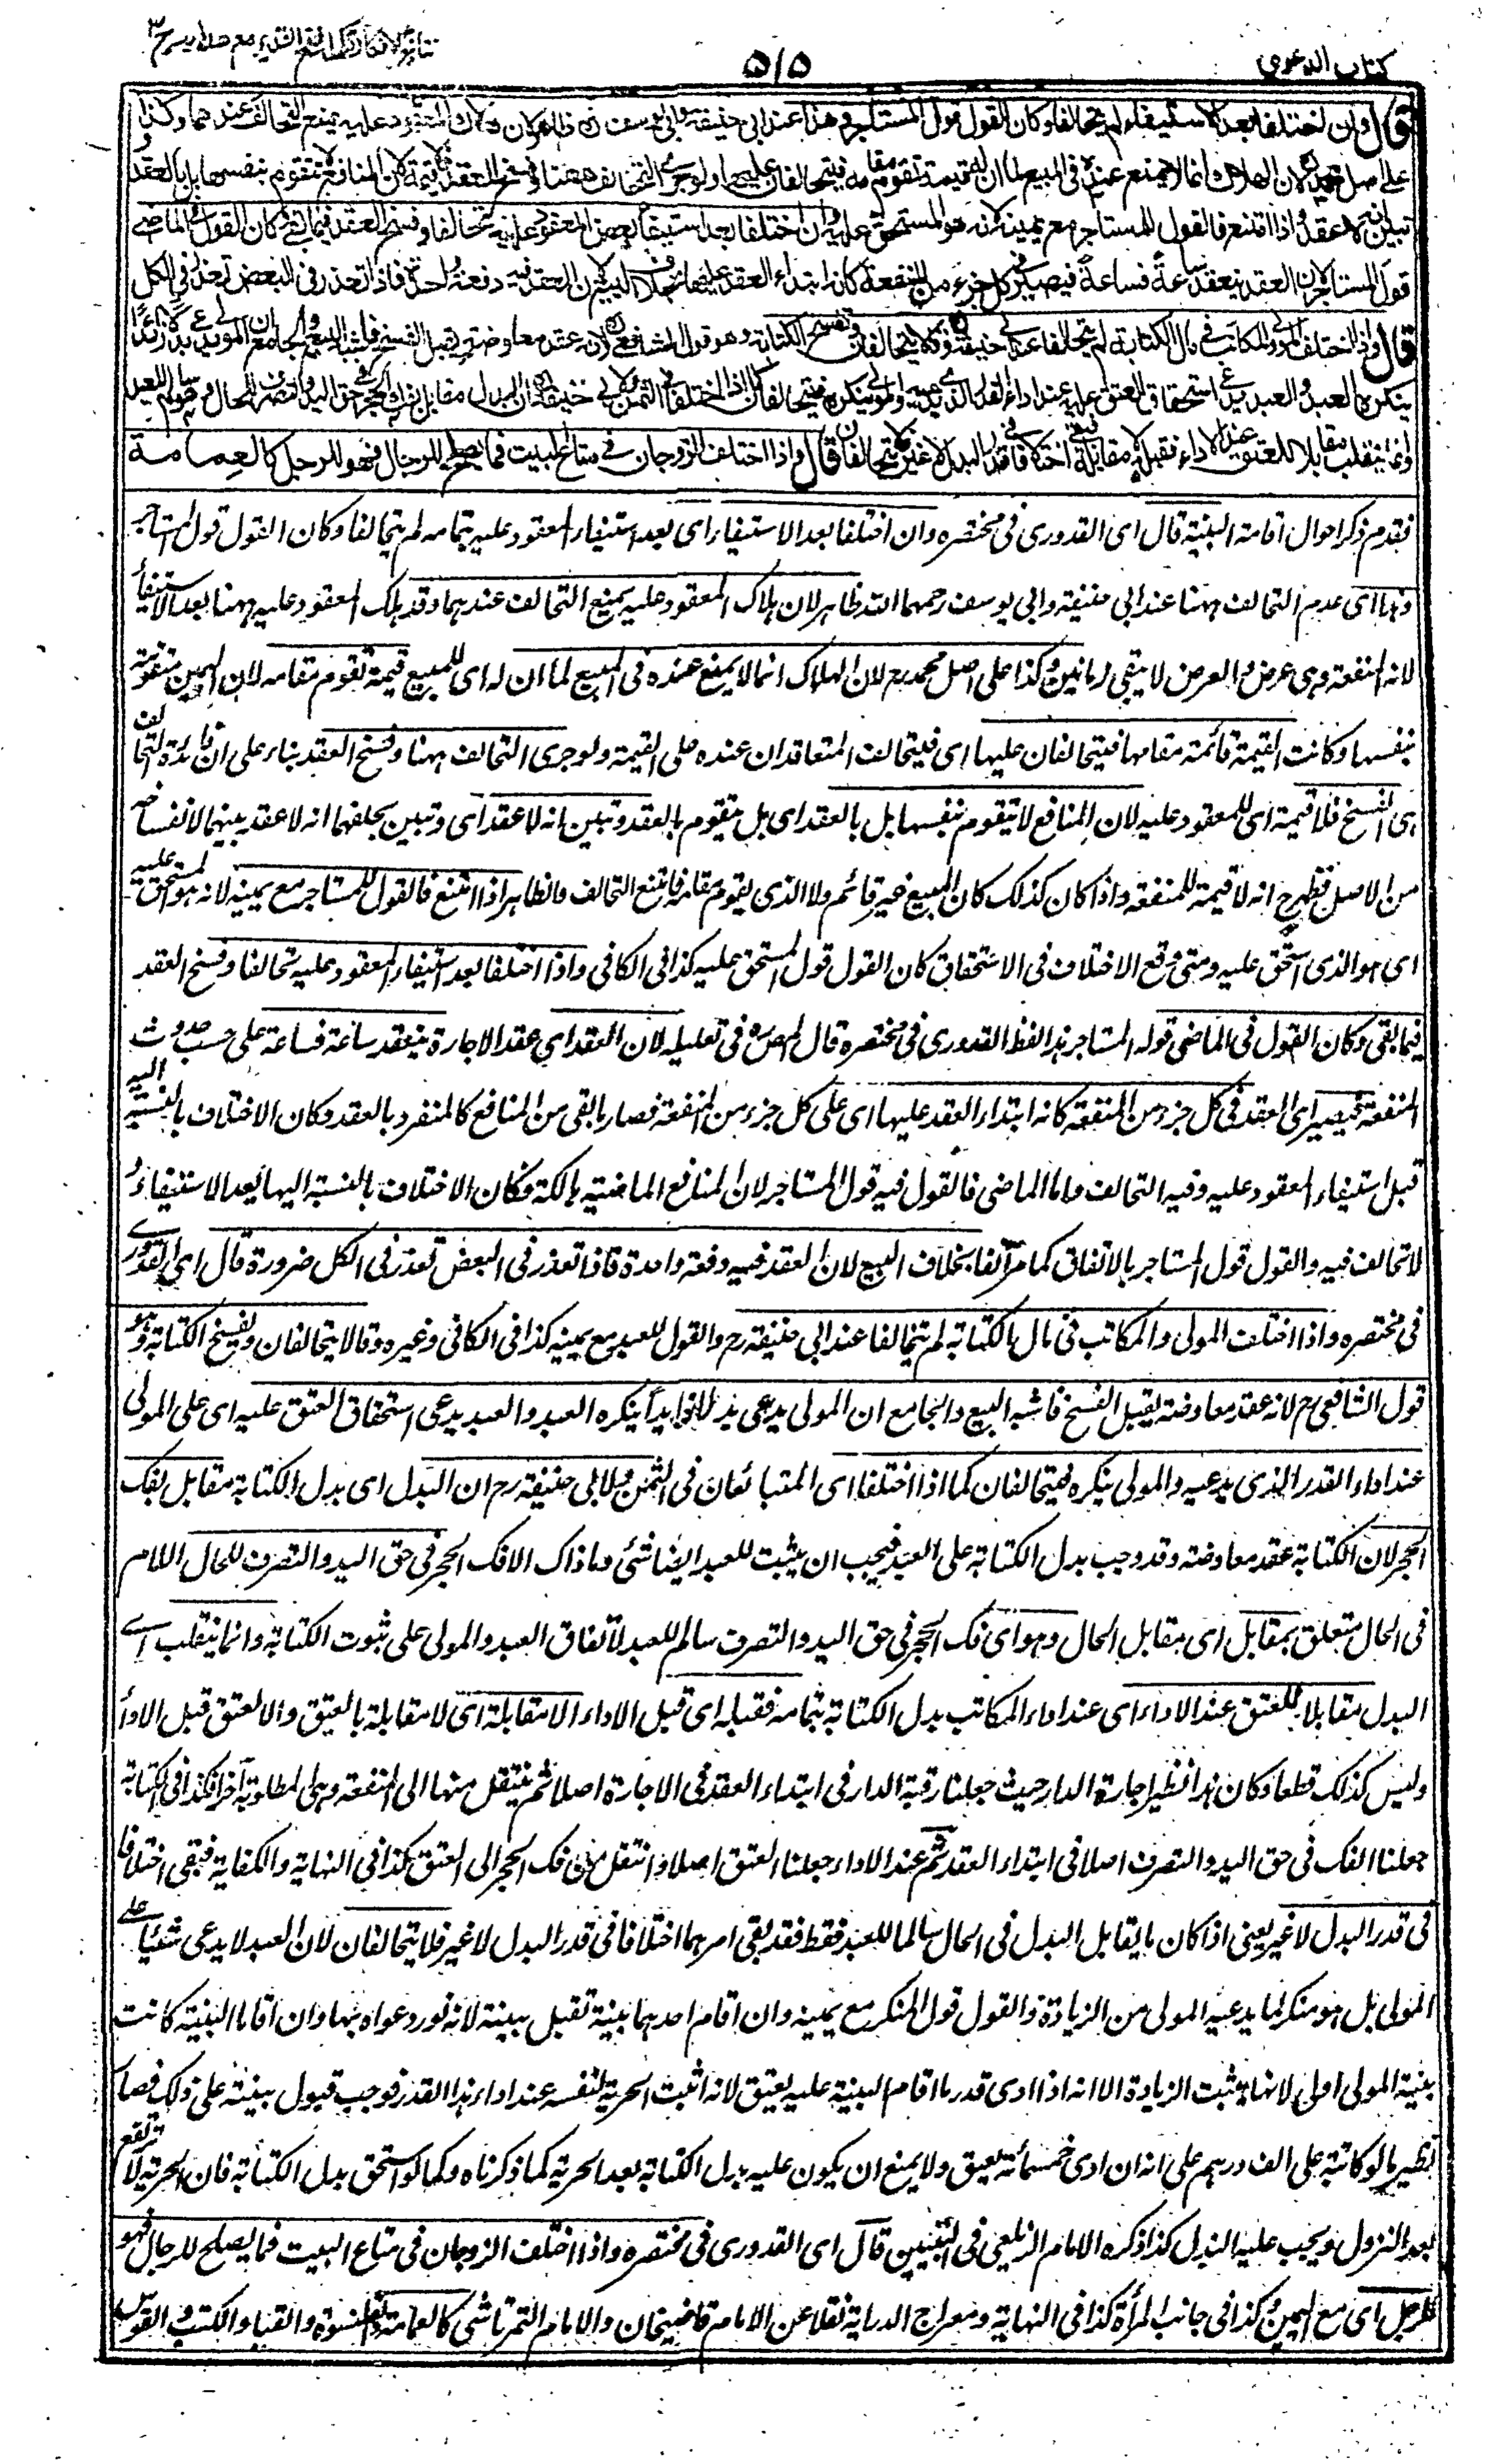 كتاب الدعوى
٥١٥
نتائج الافكار تكملة فتح القدير مع هداية ج ٣
قال وان اختلفا بعد الاستيفاء لم يتحالفا وكان القول قول المستاجر وهذا عند ابي حنيفة وابي يوسف ره ظاهر لان هلاك المعقود عليه يمنع التحالف عندهما وكذا
على اصل محمد ره لان الهلاك انما لا يمنع عنده في المبيع لما ان له قيمة تقوم مقامه فيتحالفان عليها ولو جرى التحالف ههنا وفسخ العقد فلا قيمة لان المنافع لا تتقوم بنفسها بل بالعقد و
تبين انه لا عقد واذا امتنع فالقول للمستاجر مع يمينه لانه هو المستحق عليه وان اختلفا بعد استيفاء بعض المعقود عليه تحالفا وفسخ العقد فيما بقي وكان القول في الماضي
قول المستاجر لان العقد ينعقد ساعة فساعة فيصير في كل جزء من المنفعة كان ابتداء العقد عليها بخلاف البيع لان العقد فيه دفعة واحدة فاذا تعذر في البعض تعذر في الكل
قال واذا اختلف المولى والمكاتب في مال الكتابة لم يتحالفا عند ابي حنيفة ره وقالا يتحالفان وتفسخ الكتابة وهو قول الشافعي ره لانه عقد معاوضة يقبل الفسخ فاشبه البيع والجامع ان المولى يدعي بدلا زائدا
ينكره العبد والعبد يدعي استحقاق العتق عليه عند اداء القدر الذي يدعيه والمولى ينكره فيتحالفان كما اذا اختلفا في الثمن ولابي حنيفة ره ان البدل مقابل بفك الحجر في حق اليد والتصرف للحال وهو سالم للعبد
وانما ينقلب مقابلا للعتق عند الاداء فقبله لا مقابلة فبقي اختلافا في قدر البدل لا غير فلا يتحالفان قال واذا اختلف الزوجان في متاع البيت فما يصلح للرجال فهو للرجل كالعمامة
فقدم ذكر احوال اقامة البينة قال اى القدورى فى مختصره وان اختلفا بعد الاستيفاء اى بعد استيفاء المعقود عليه بتمامه لم يتحالفا وكان القول قول المستاجر
وهذا اى عدم التحالف ههنا عند ابى حنيفة وابى يوسف رحمهما الله ظاهر لان هلاك المعقود عليه يمنع التحالف عندهما وقد هلك المعقود عليه ههنا بعد الاستيفاء
لانه المنفعة وهى عرض والعرض لا يبقى زمانين وكذا على اصل محمد رح لان الهلاك انما لا يمنع عنده فى المبيع لما ان له اى للمبيع قيمة تقوم مقامه لان العين متقومة
بنفسها وكانت القيمة قائمة مقامها فيتحالفان عليها اى فيتحالف المتعاقدان عنده على القيمة ولو جرى التحالف ههنا وفسخ العقد بناء على ان فائدة التحالف
هى الفسخ فلا قيمة اى للمعقود عليه لان المنافع لا تتقوم بنفسها بل بالعقد اى بل تتقوم بالعقد وتبين انه لا عقد اى وتبين بحلفهما انه لا عقد بينهما لانفساخه
من الاصل فظهر ح انه لا قيمة للمنفعة واذا كان كذلك كان المبيع غير قائم ولا الذى يقوم مقامه فامتنع التحالف فالظاهر اذا امتنع فالقول للمستاجر مع يمينه لانه هو المستحق عليه
اى هو الذى استحق عليه ومتى وقع الاختلاف فى الاستحقاق كان القول قول المستحق عليه كذا فى الكافى واذا اختلفا بعد استيفاء المعقود عليه تحالفا وفسخ العقد
فيما بقى وكان القول فى الماضى قوله المستاجر هذا لفظ القدورى فى مختصره قال المص ره فى تعليله لان العقد اى عقد الاجارة ينعقد ساعة فساعة على حسب حدوث
المنفعة فيصير اى العقد فى كل جزء من المنفعة كانه ابتداء العقد عليها اى على كل جزء من المنفعة فصار ما بقى من المنافع كالمنفرد بالعقد وكان الاختلاف بالنسبة اليه
قبل استيفاء المعقود عليه وفيه التحالف واما الماضى فالقول فيه قول المستاجر لان المنافع الماضية هالكة فكان الاختلاف بالنسبة اليها بعد الاستيفاء و
لا تحالف فيه والقول قول المستاجر بالاتفاق كما مر آنفا بخلاف البيع لان العقد فيه دفعة واحدة فاذا تعذر فى البعض تعذر فى الكل ضرورة قال اى القدورى
فى مختصره واذا اختلف المولى والمكاتب فى مال الكتابة لم يتحالفا عند ابى حنيفة رح والقول للعبد مع يمينه كذا فى الكافى وغيره وقالا يتحالفان وتفسخ الكتابة وهو
قول الشافعى رح لانه عقد معاوضة يقبل الفسخ فاشبه البيع والجامع ان المولى يدعى بدلا زائدا ينكره العبد والعبد يدعى استحقاق العتق عليه اى على المولى
عند اداء القدر الذى يدعيه والمولى ينكره فيتحالفان كما اذا اختلفا اى المتبائعان فى الثمن ولابى حنيفة رح ان البدل اى بدل الكتابة مقابل بفك
الحجر لان الكتابة عقد معاوضة وقد وجب بدل الكتابة على العبد فيجب ان يثبت للعبد ايضا شئ وما ذاك الا فك الحجر فى حق اليد والتصرف للحال اللام
فى الحال متعلق بمقابل اى مقابل الحال وهو اى فك الحجر فى حق اليد والتصرف سالم للعبد لاتفاق العبد والمولى على ثبوت الكتابة وانما ينقلب اى
البدل مقابلا للعتق عند الاداء اى عند اداء المكاتب بدل الكتابة بتمامه فقبله اى قبل الاداء لا مقابلة اى لا مقابلة بالعتق والا لعتق قبل الاداء
وليس كذلك قطعا وكان هذا نظير اجارة الدار حيث جعلنا رقبة الدار فى ابتداء العقد فى الاجارة اصلا ثم ينتقل منها الى المنفعة وهى المطلوبة آخرا فكذا فى الكتابة
جعلنا الفك فى حق اليد والتصرف اصلا فى ابتداء العقد ثم عند الاداء جعلنا العتق اصلا وانتقل من فك الحجر الى العتق كذا فى النهاية والكفاية فبقى اختلافا
فى قدر البدل لا غير يعنى اذا كان ما يقابل البدل فى الحال سالما للعبد فقط فقد بقى امرهما اختلافا فى قدر البدل لا غير فلا يتحالفان لان العبد لا يدعى شيئا على
المولى بل هو منكر لما يدعيه المولى من الزيادة والقول قول المنكر مع يمينه وان اقام احدهما بينة تقبل بينته لانه نور دعواه بها وان اقاما البينة كانت
بينة المولى اولى لانها تثبت الزيادة الا انه اذا ادى قدر ما اقام البينة عليه يعتق لانه اثبت الحرية لنفسه عند اداء هذا القدر فوجب قبول بينته على ذلك فصار
نظير ما لو كاتبه على الف درهم على انه ان ادى خمسمائة يعتق ولا يمنع ان يكون عليه بدل الكتابة بعد الحرية كما ذكرناه وكما لو استحق بدل الكتابة فان الحرية لا ترتفع
بعد النزول ويجب عليه البدل كذا ذكره الامام الزيلعى فى التبيين قال اى القدورى فى مختصره واذا اختلف الزوجان فى متاع البيت فما يصلح للرجال فهو
للرجل اى مع اليمين وكذا فى جانب المرأة كذا فى النهاية ومعراج الدراية نقلا عن الامام قاضيخان والامام التمرتاشى كالعمامة والقلنسوة والقباء والكتب والقوس